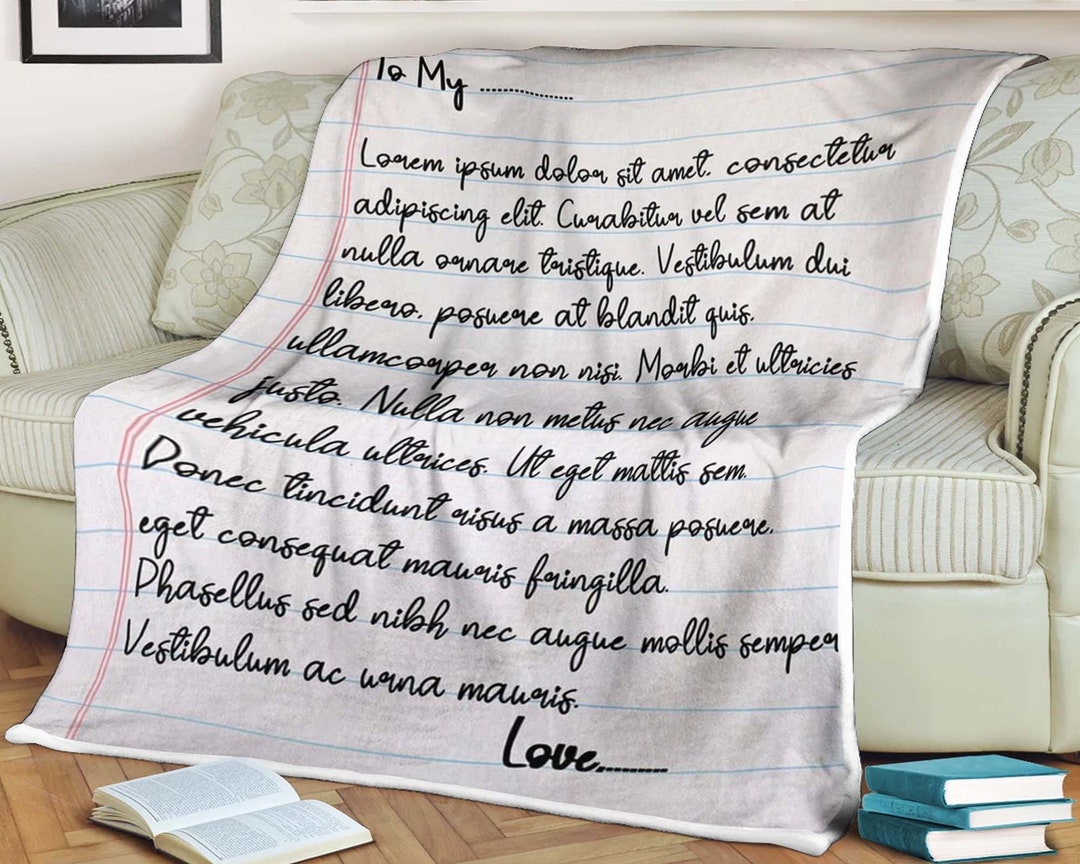 To My ................
Lorem ipsum dolor sit amet, consectetur
adipiscing elit. Curabitur vel sem at
nulla ornare tristique. Vestibulum dui
libero, posuere at blandit quis,
ullamcorper non nisi. Morbi et ultricies
justo. Nulla non metus nec augue
vehicula ultrices. Ut eget mattis sem.
Donec tincidunt risus a massa posuere,
eget consequat mauris fringilla.
Phasellus sed nibh nec augue mollis semper
Vestibulum ac urna mauris.
Love..........